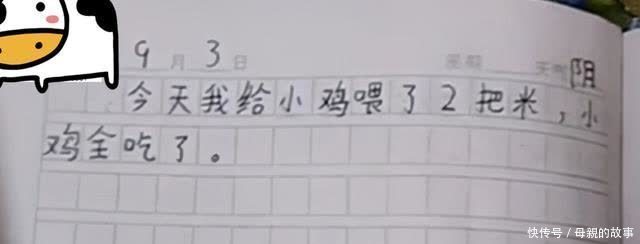 9月3日 星期 天气阴
今天我给小鸡喂了2把米，小
鸡全吃了。
快传号/母親的故事